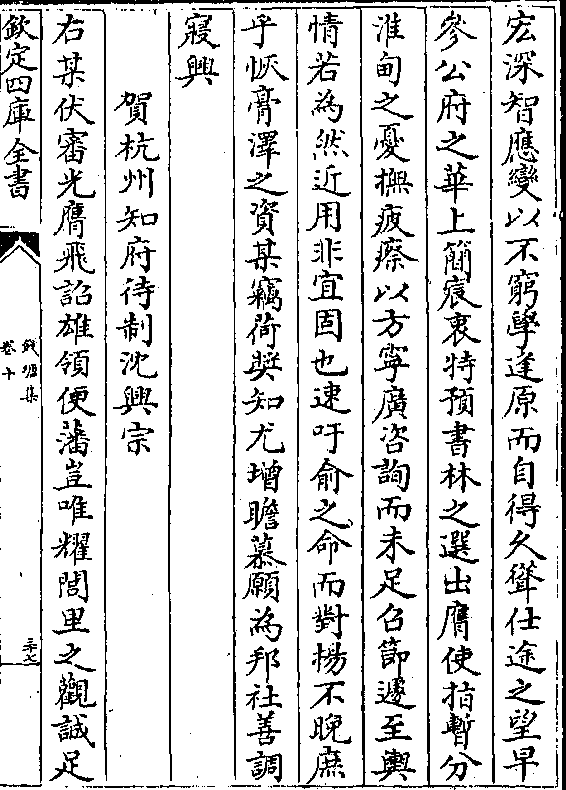 宏深智應變以不窮學逢原而自得久聳仕途之望早
參公府之華上簡宸衷特預書林之選出膺使指暫分
淮甸之憂撫疲瘵以方寧廣咨詢而未足召節遽至輿
情若為然近用非宜固也速吁俞之命而對揚不晚庶
乎恢膏澤之資某竊荷奬知尤增瞻慕願為邦社善調
寢興
賀杭州知府待制沈興宗
右某伏審光膺飛詔雄領便藩豈唯耀閭里之觀誠足
欽定四庫全書
錢塘集
卷十
三十七